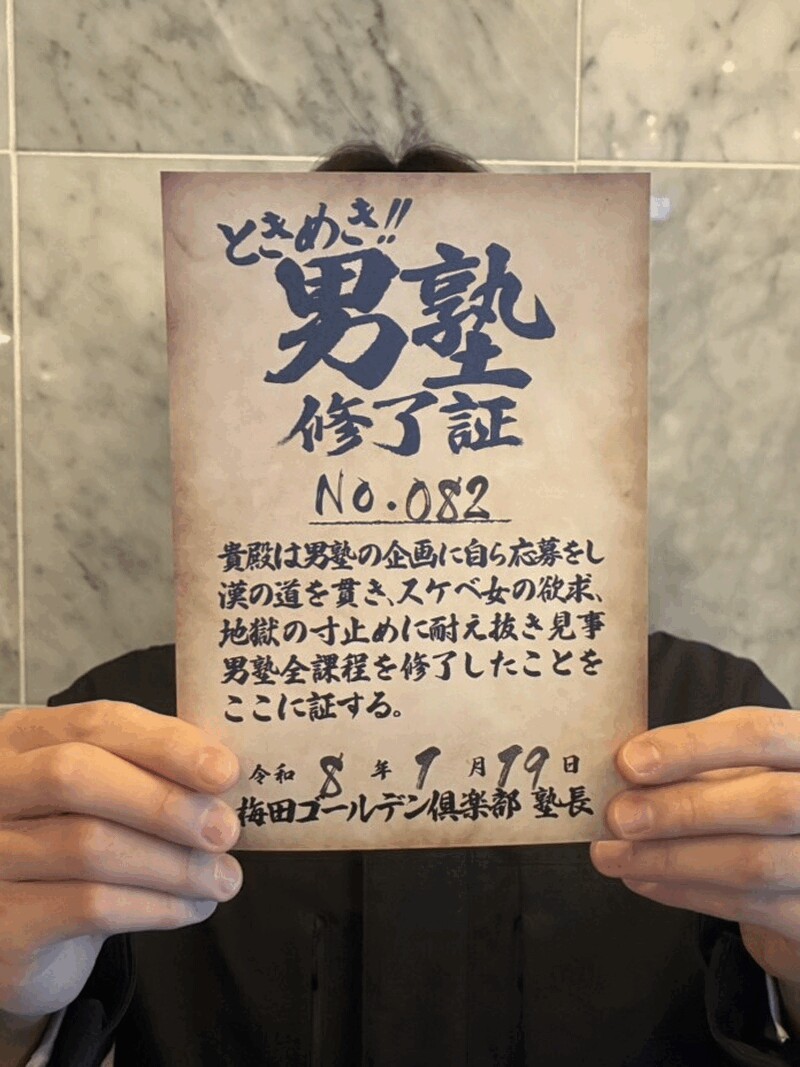 ときめき!!
男塾
修了証
No.082
貴殿は男塾の企画に自ら応募をし
漢の道を貫き、スケベ女の欲求、
地獄の寸止めに耐え抜き見事
男塾全課程を修了したことを
ここに証する。
令和 8 年 1 月 19 日
梅田ゴールデン倶楽部 塾長